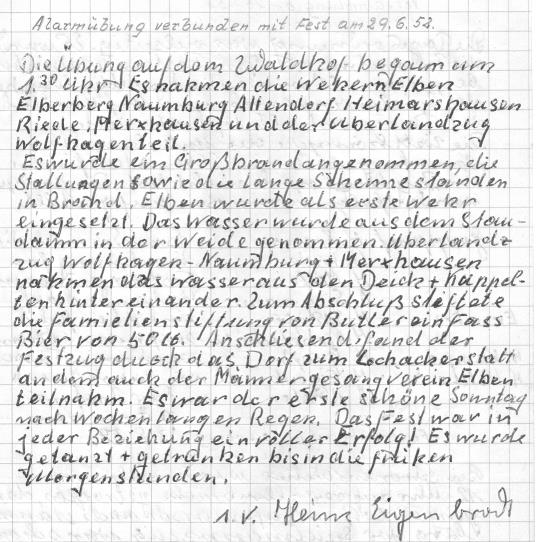 Alarmübung verbunden mit Fest am 29.6.58.
Die Übung auf dem Waldhof begann um
1.30 Uhr. Es nahmen die Wehren Elben
Elberberg Naumburg Altendorf Heimarshausen
Riede, Merxhausen und der Überlandzug
Wolfhagen teil.
Es wurde ein Großbrand angenommen, die
Stallungen sowie die lange Scheune standen
in Brand. Elben wurde als erste Wehr
eingesetzt. Das Wasser wurde aus dem Stau-
damm in der Weide genommen. Überland-
zug Wolfhagen - Naumburg + Merxhausen
nahmen das wasser aus den Deich + kappel-
ten hintereinander. Zum Abschluß stiftete
die Familienstiftung von Buttler ein Fass
Bier von 50 lb. Anschliesend, fand der
Festzug durch das Dorf zum Lochacker statt
an dem auch der Männergesangverein Elben
teilnahm. Es war der erste schöne Sonntag
nach Wochenlangen Regen. Das Fest war in
jeder Beziehung ein voller Erfolg! Es wurde
getanzt + getrunken bis in die frühen
Morgenstunden.
i.V. Heinr Eigenbrodt